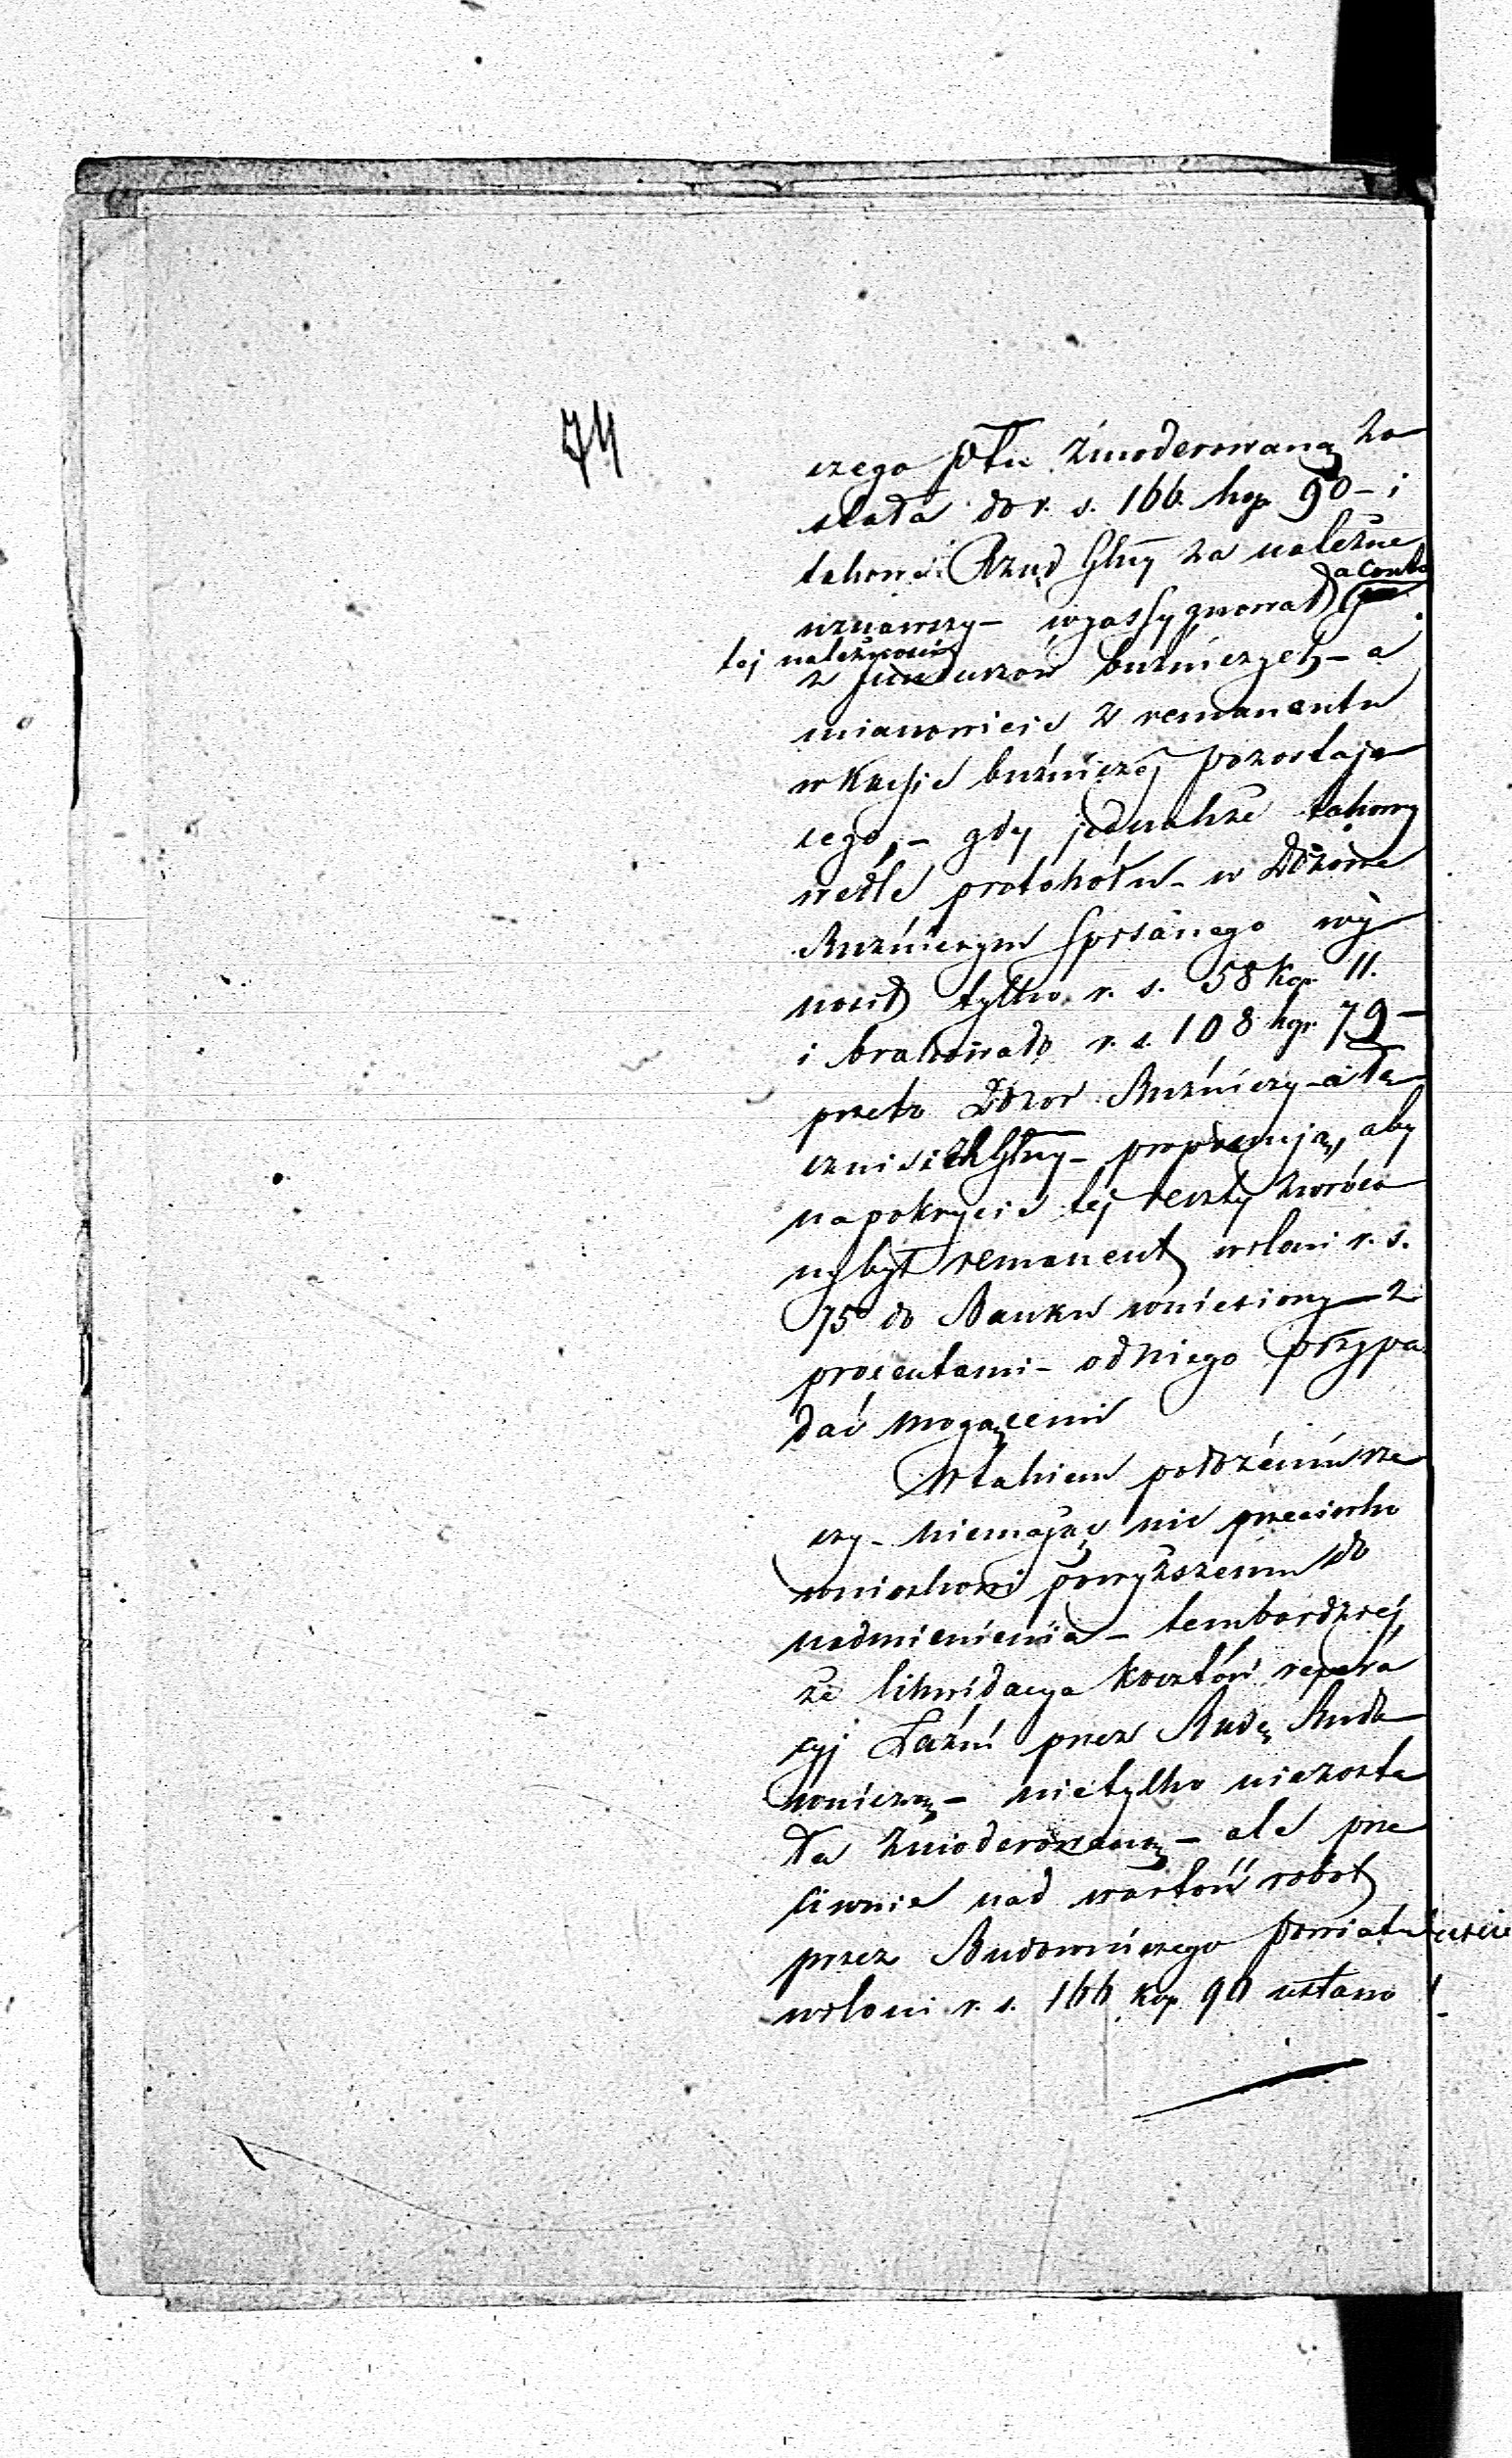 74
czego Pttu zmoderowaną zo
stała do r. s. 166. kop. 90 – i
takową Rząd Gbny za należne
uznawszy – wyassygnował a conto
tej należności
z funduszów bużniczych – a
mianowicie z remanentu
w Kassie bużniczéj pozostają
cego, – gdy jednakże takowy
wedle protokółu – w Dozorze
Bużniczym spisanego wy
nosił tylko r. s. 58 kop. 11.
i brakowało r. s. 108 kop. 79 –
przeto Dozor Bużniczy – a łą
cznie i Gbny – proponują, aby
na pokrycie téj reszty zwróco
ny był remanent w iłoci r. s.
75 do Banku wniesiony – z
procentami – od niego przypa
dać mogącemi
W takiem położeniu rze
czy – niemając nic przeciwko
wnioskowi powyższemu do
nadmienienia – tembardziej,
że likwidacya kosztów repera
cyj Łaźni przez Radę Budo
wniczą – nietylko niezosta
ła zmoderowaną – ale prze
ciwnie nad wartość robót
przez Budowniczego Powiatu
w iłoci r. s. 166 kop. 90 ustano